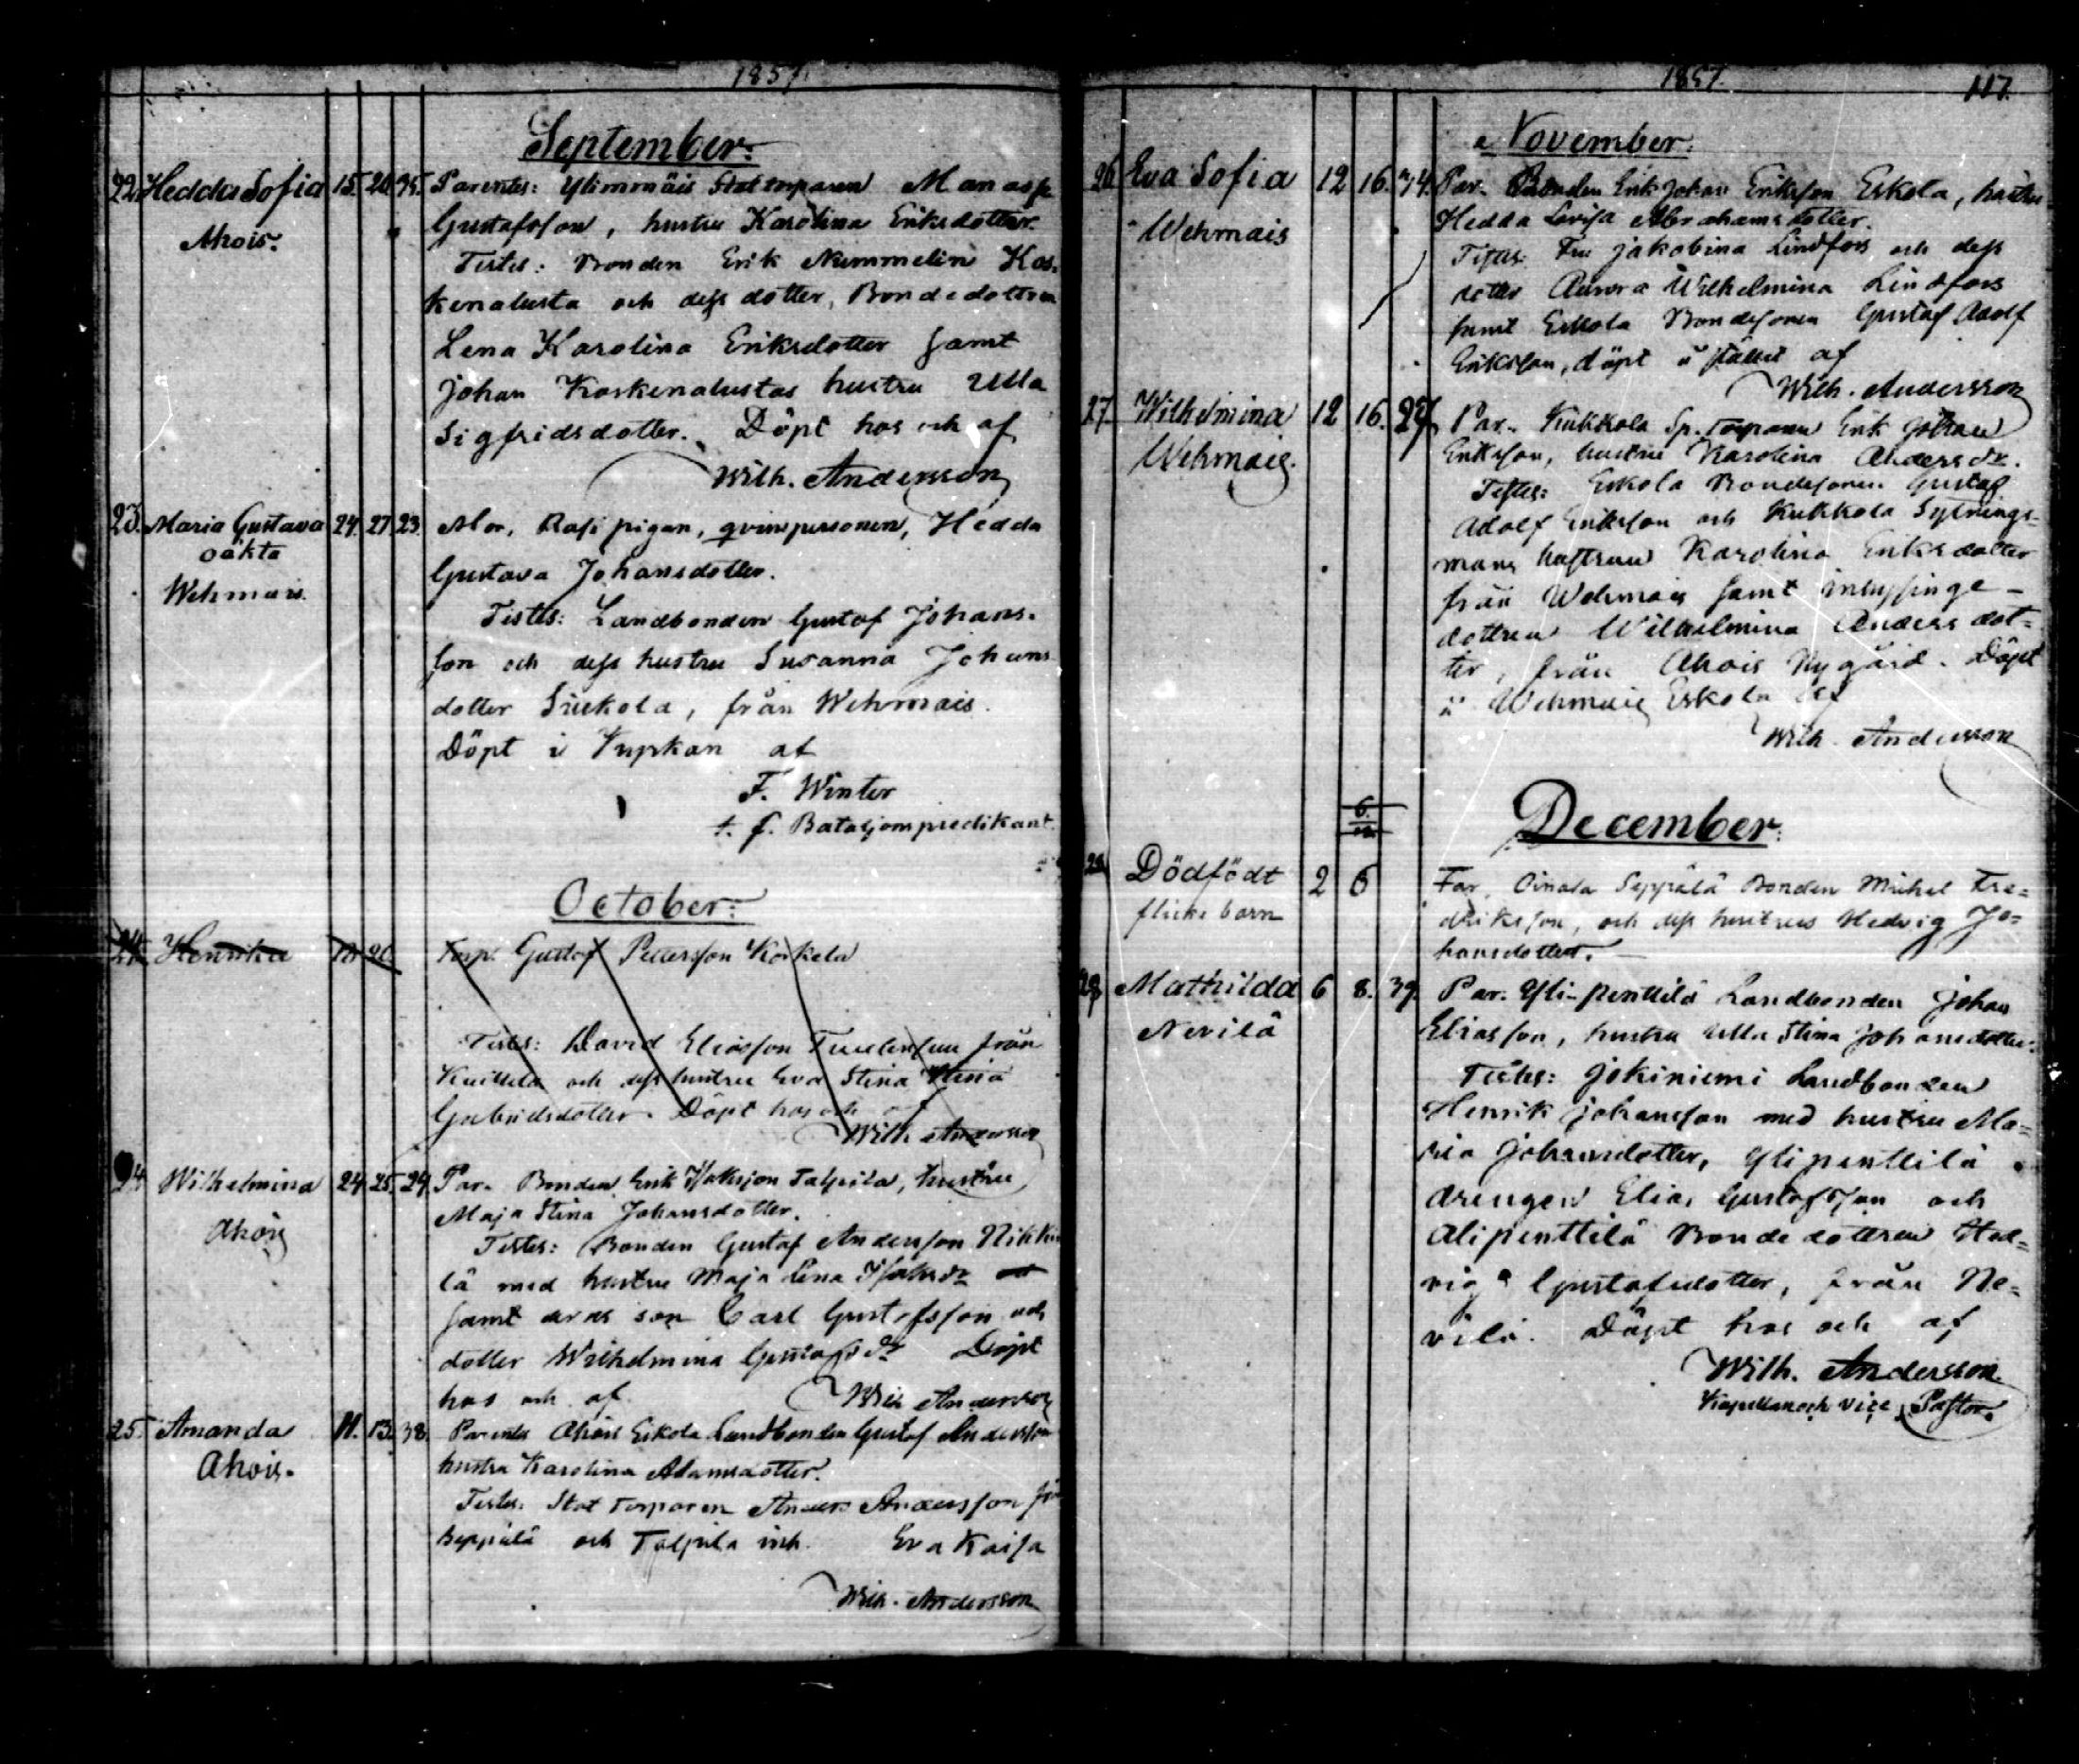 1857.
September:
22. Hedda Sofia 15. 20. 35. Parentes: Ylimmäis Stattorparen Manasse
Ahois. Gustafsson, hustru Karolina Eriksdotter.
Testes: Bonden Erik Nummelin Kos-
kenalusta och dess dotter, Bondedottren
Lena Karolina Eriksdotter samt
Johan Koskenalustas hustru Ulla
Sigfridsdotter. Döpt hos och af
Wilh. Andersson
23. Maria Gustava 24. 27. 23. Mor, Rasi pigan, qvinspersonen, Hedda
oäkta Gustava Johansdotter.
Wehmais.
Testes: Landbonden Gustaf Johans-
son och dess hustru Susanna Johans
dotter Siukola, från Wehmais.
Döpt i af
F. Winter
t. f. Bataljonspredikant.
October:
24. Henrika 20. Torp. Gustaf Pettersson Koskela
Testes: David Eliasson från
Knuttila och dess hustru Eva Stina Stina
Gabrielsdotter. Döpt hos och af
Wilh Andersson
24 Wilhelmina 24 25. 29 Par. Bonden Erik Isaksson Talpila, hustru
Ahois Maja Stina Johansdotter.
Testes: Bonden Gustaf Andersson Nikki
lä med hustru Maja Lena Isaksdr
samt deras son Carl Gustafsson och
dotter Wilhelmina Gustafsdr Döpt
hos och af Wilh Andersson
25. Amanda 11. 13. 38. Parentes Ahois Eskola Landbonden Gustaf Andersson
Ahois. hustru Karolina Adamsdotter.
Testes: Stat Torparen Anders Andersson
Seppälä och Talpila inh. Eva Kaisa
Wilh. Andersson
1857. 117.
November.
26 Eva Sofia 12 16. 34. Par. Bonden Erik Johan Eriksson Eskola, hustru
Wehmais Hedda Lovisa Abrahamsdotter.
Testes: Fru Jakobina Lindfors och dess
dotter Aurora Wilhelmina Lindfors
samt Eskola Bondesonen Gustaf Adolf
Eriksson, döpt å stället af
Wilh. Andersson
27. Wilhelmina 12 16. 27. Par. Kukkola Sp. Torparen Erik Johan
Wehmais. Eriksson, hustru Karolina Andersdr.
Testes: Eskola Bondesonen Gustaf
Adolf Eriksson och Kukkola Sytnings-
mans hustrun Karolina Eriksdotter
från Wehmais samt inhysinge-
dottren Wilhelmina Andersdot-
ter, från Ahois Nygård. Döpt
i Wehmais Eskola af
Wilh. Andersson
6.
December:
28 Dödfödt 2 6 Far, Oinala Seppälä Bonden Michel Fre-
flicke barn driksson, och dess hustrus Hedvig Jo-
hansdotter.
29 Mathilda 6 8. 39. Par. Yli-penttilä Landbonden Johan
Nevilä Eliasson, hustru Ulla Stina Johansdotter.
Testes: Jokiniemi Landbonden
Henrik Johansson med hustru Ma-
ria Johansdotter, Ylipenttilä
drengen Elias Gustafsson och
Alipenttilä Bondedottren Hed-
vig Gustafsdotter, från Ne-
vilä. Döpt hos och af
Wilh. Andersson.
Kapellan och vice Pastor.